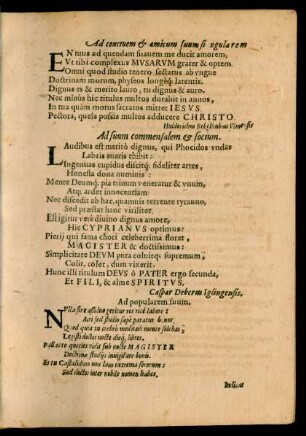 Ad contuem & amicum suum singularem
EN tuus ad quendam suavem me ducit amorem,
Ut tibi complexus MUSARUM grater & optem.
Omni quod studio tenero sectatus ab ungue
Doctrinam morum, physeos longéq; latentia.
Dignus es & merito lauro, tu dignus & auro.
Nec minùs hic titulus multos durabit in annos,
In tua quàm moras sacratos mittet IESUS
Pectora, queis possis multos adducere CHRISTO.
Ad suum commensalem & socium.
LAudibus est meritò dignus, qui Phocidos undas
Labris
Ingenuas cupidus discitq; fideliter artes,
Honesta dona numinis:
Mente Deumq; pia trinum veneratur & unum,
Atq; ardet innocentiam:
Nec discedit ab hac, quamvis terrente tyranno,
Sed præstat hanc viriliter.
Est igitur verè divino dignus amore,
Hic CYPRIANUS optimus:
Pierij qui fama chori celeberrima floret,
MAGISTER & doctissimus:
Simplicitate DEUM pura coluitq; supremum,
Colit, colet, dum vixerit.
Hunc illi titulum DEUS ô PATER ergo secunda,
Et FILI, & alme SPIRITUS.
Caspar Deberm Iglingensis.
Ad popularem suum.
NUlla fere
Quod quia tu crebrò meditari
Legisti doctus nocte dieq; libros.
Pallade quoties rediit sub nocte MAGISTER
Doctrinæ studijs invigilare bonis.
Et tu Castalidum nunc laus extrema sororum:
Sed doctus inter nobile nomen habes.